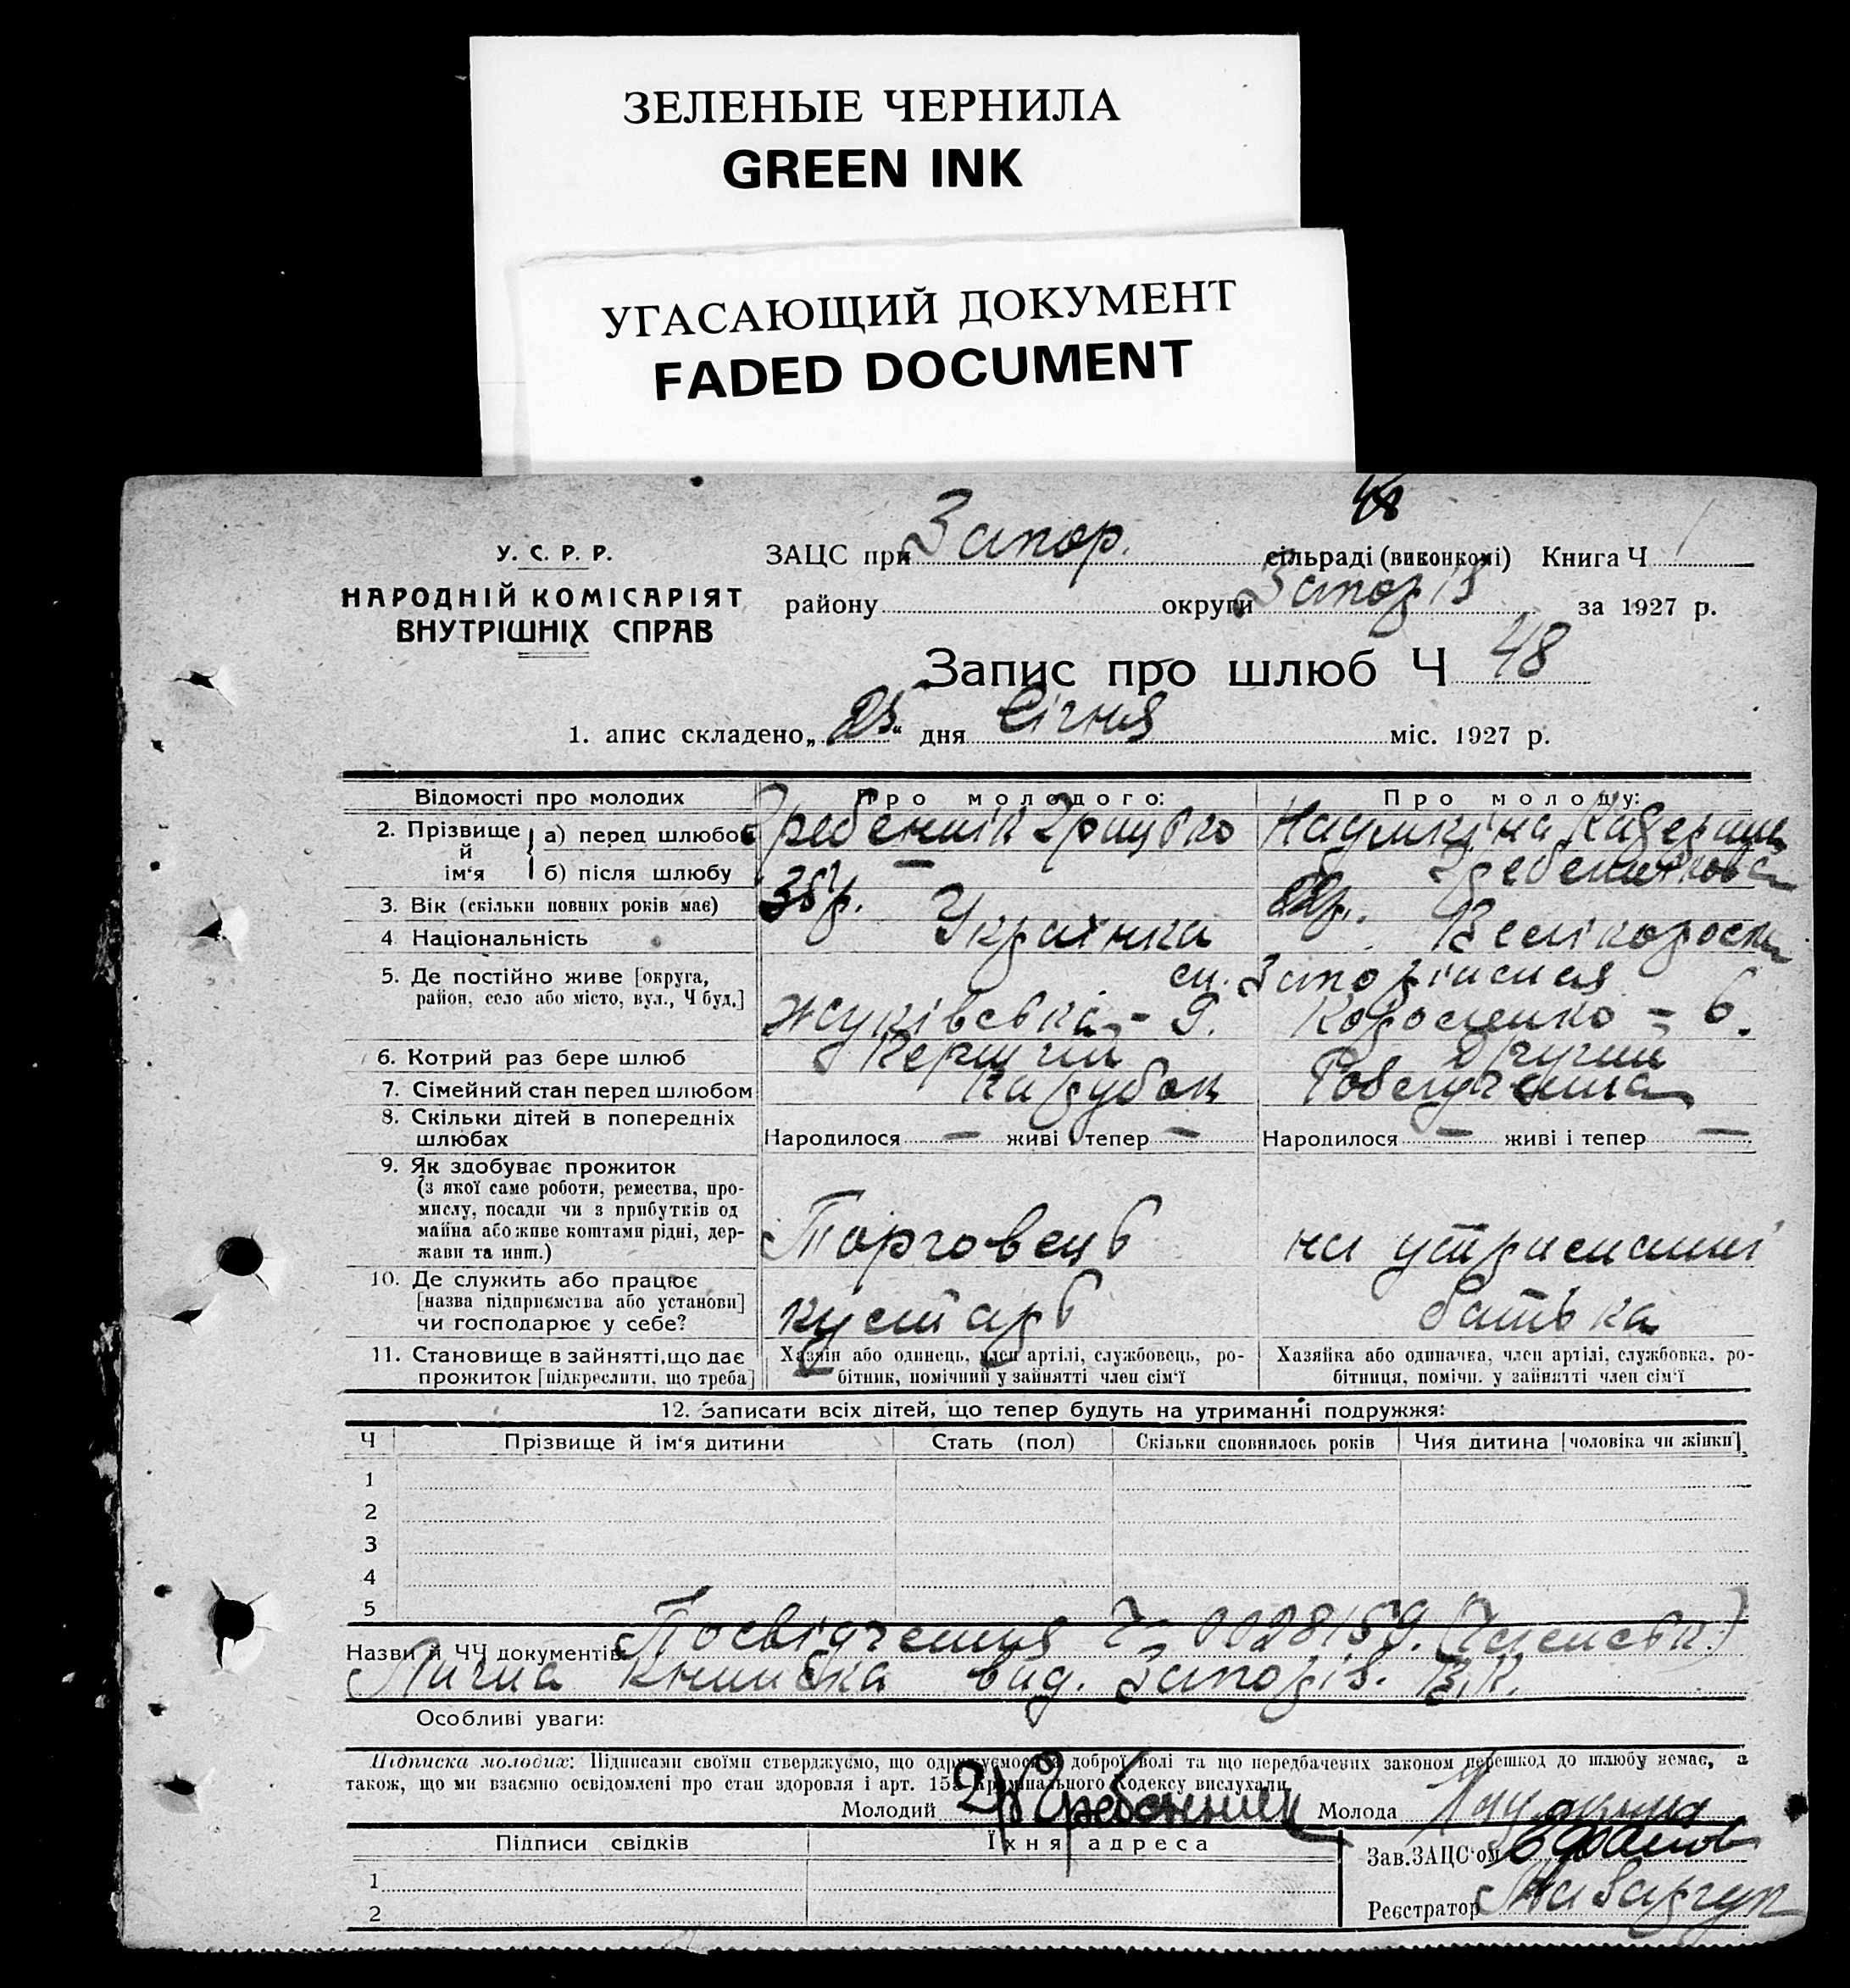 ЗЕЛЕНЫЕ ЧЕРНИЛА
GREEN INK
УГАСАЮЩИЙ ДОКУМЕНТ
FADED DOCUMENT
48
У. С. Р. Р.
НАРОДНІЙ КОМІСАРІЯТ
ВНУТРІШНІХ СПРАВ
ЗАЦС при Запор. сільраді (виконкомі) Книга Ч 1
району округи Запоріз за 1927 р.
Запис про шлюб Ч 48
1. апис складено „25“ дня Січня міс. 1927 р.
Відомості про молодих Про молодого: Про молоду:
2. Прізвище й ім‘я а) перед шлюбом Гребенник Грицько Наумкіна
б) після шлюбу — Гребенникова
3. Вік (скільки повних років має) 35р. 22р.
4 Національність Українка Велікороска
5. Де постійно живе [округа, район, село або місто, вул., Ч буд.] Запоріжжя
Жуківська - 9. - 6.
6. Котрий раз бере шлюб Перший Другий
7. Сімейний стан перед шлюбом Парубок Розлучена
8. Скільки дітей в попередніх шлюбах Народилося — живі і тепер — Народилося — живі і тепер —
9. Як здобуває прожиток
(з якої саме роботи, ремества, про-
мислу, посади чи з прибутків од
майна або живе коштами рідні, дер-
жави та инш.) Торговець на утриманні
10. Де служить або працює
[назва підприємства або установи]
чи господарює у себе? кустарь батька
11. Становище в зайнятті, що дає
прожиток [підкреслити, що треба]
Хазяїн або одинець, член артілі, службовець, ро-
бітник, помічний у зайнятті член сім‘ї
Хазяйка або одиначка, член артілі, службовка, ро-
бітниця, помічн. у зайнятті член сім‘ї
12. Записати всіх дітей, що тепер будуть на утриманні подружжя:
Ч Прізвище й ім‘я дитини Стать (пол) Скільки сповнилось років Чия дитина [чоловіка чи жінки]
1
2
3
4
5
Назви й ЧЧ документів: Посвідчення Ч 0028159.
Лична книжка вид. Запоріз. В.К.
Особливі уваги:
Підписка молодих: Підписами своїми стверджуємо, що одружуємося з доброї волі та що передбачених законом перешкод до шлюбу немає, а
також, що ми взаємно освідомлені про стан здоровля і арт. 155 Кримінального Кодексу вислухали
Молодий Гр Гребенник Молода Наумкина
Підписи свідків Їхня адреса
Зав. ЗАЦС‘ом
1
Реєстратор
2